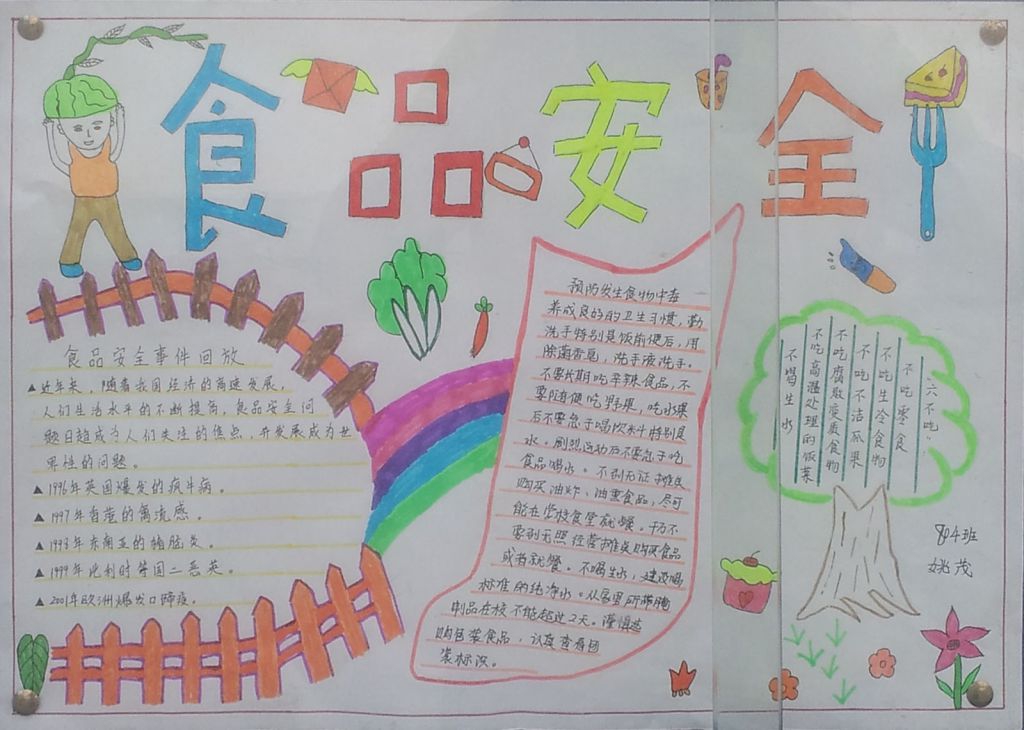 食品安全
食品安全事件回放
▲近年来，随着我国经济的高速发展，
人们生活水平的不断提高，食品安全问
题日趋成为人们关注的焦点，并发展成为世
界性的问题。
▲1996年英国爆发的疯牛病。
▲1997年香港的禽流感。
▲1998年东南亚的猪脑炎。
▲1999年比利时等国二恶英。
▲2001年欧洲爆发口蹄疫。
预防发生食物中毒
养成良好的卫生习惯，勤
洗手特别是饭前便后，用
除菌香皂，洗手液洗手。
不要长期吃辛辣食品，不
要随便吃野果，吃水果
后不要急于喝饮料特别是
水。剧烈运动后不要急于吃
食品喝水。不到无证摊点
购买油炸、油熏食品，尽可
能在学校食堂就餐。千万不
要到无照经营摊点购买食品
或者就餐。不喝生水，建议喝
标准的纯净水。从家里所带腌
制品在校不能超过2天。谨慎选
购包装食品，认真查看包
装标识。
“六不吃”
不吃零食
不吃生冷食物
不吃不洁瓜果
不吃腐败变质食物
不吃高温处理的饭菜
不喝生水
804班
姚茂